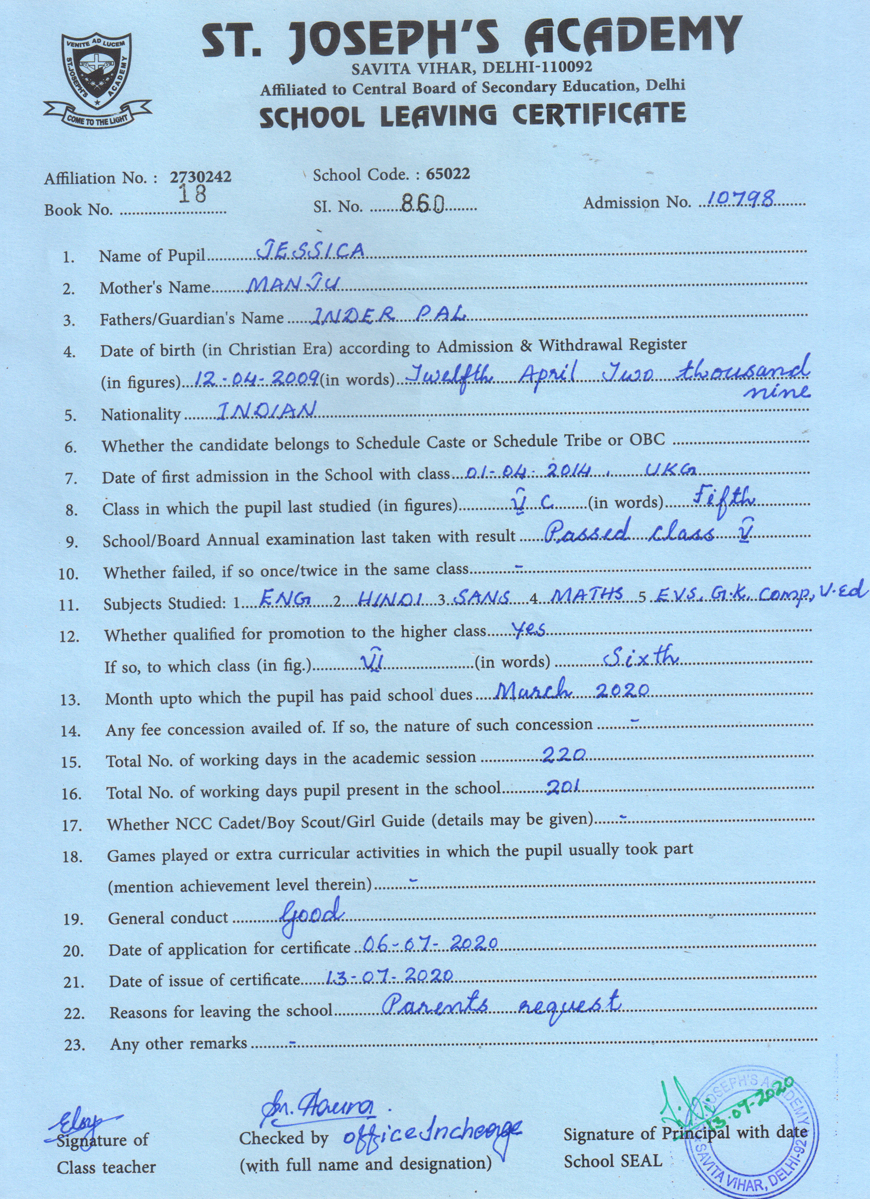 VENITE AD LUCEM
ST. JOSEPH'S ACADEMY
COME TO THE LIGHT
ST. JOSEPH'S ACADEMY
SAVITA VIHAR, DELHI-110092
Affiliated to Central Board of Secondary Education, Delhi
SCHOOL LEAVING CERTIFICATE
Affiliation No. : 2730242 School Code. : 65022
Book No. 18 SI. No. 860 Admission No. 10798
1. Name of Pupil JESSICA
2. Mother's Name MANJU
3. Fathers/Guardian's Name INDER PAL
4. Date of birth (in Christian Era) according to Admission & Withdrawal Register
(in figures) 12-04-2009 (in words) Twelfth April Two thousand
nine
5. Nationality INDIAN
6. Whether the candidate belongs to Schedule Caste or Schedule Tribe or OBC
7. Date of first admission in the School with class 01-04-2014, UKG
8. Class in which the pupil last studied (in figures) V C (in words) Fifth
9. School/Board Annual examination last taken with result Passed class V
10. Whether failed, if so once/twice in the same class -
11. Subjects Studied: 1. ENG 2. HINDI 3. SANS 4. MATHS 5. EVS, G.K, Comp, V.Ed
12. Whether qualified for promotion to the higher class yes
If so, to which class (in fig.) VI (in words) Sixth
13. Month upto which the pupil has paid school dues March 2020
14. Any fee concession availed of. If so, the nature of such concession -
15. Total No. of working days in the academic session 220
16. Total No. of working days pupil present in the school 201
17. Whether NCC Cadet/Boy Scout/Girl Guide (details may be given) -
18. Games played or extra curricular activities in which the pupil usually took part
(mention achievement level therein) -
19. General conduct Good
20. Date of application for certificate 06-07-2020
21. Date of issue of certificate 13-07-2020
22. Reasons for leaving the school Parents request
23. Any other remarks -
Signature of Checked by office Incharge Signature of Principal with date
Class teacher (with full name and designation) School SEAL
JOSEPH'S ACADEMY
SAVITA VIHAR, DELHI-92